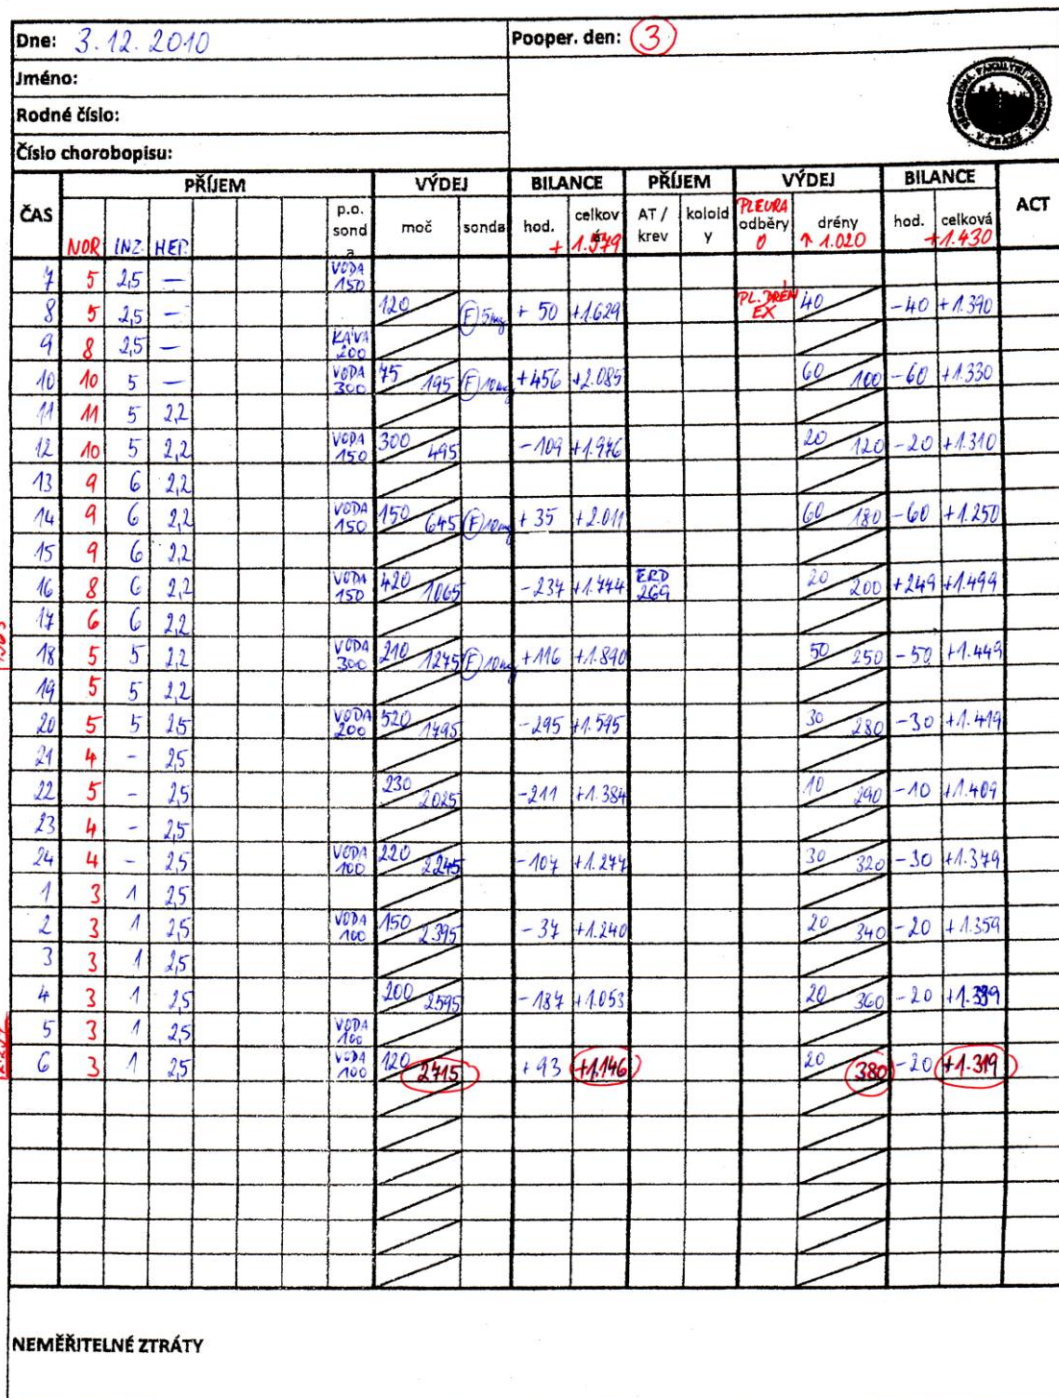 Dne: 3.12.2010 Pooper. den: 3
Jméno:
Rodné číslo:
Číslo chorobopisu:
PŘÍJEM VÝDEJ BILANCE PŘÍJEM VÝDEJ BILANCE
ČAS NOR INZ. HEP. p.o. sond a moč sonda hod. celkov á + 1.579 AT / krev koloid y PLEURA odběry 0 drény ↑ 1.020 hod. celková +1.430 ACT
7 5 2,5 — VODA 150
8 5 2,5 — 120 F 5mg + 50 +1.629 PL. DRÉN EX 40 -40 +1.390
9 8 2,5 — KÁVA 200
10 10 5 — VODA 300 75 195 F 10mg +456 +2.085 60 100 -60 +1.330
11 11 5 2,2
12 10 5 2,2 VODA 150 300 495 -109 +1.976 20 120 -20 +1.310
13 9 6 2,2
14 9 6 2,2 VODA 150 150 645 F 10mg + 35 +2.011 60 180 -60 +1.250
15 9 6 2,2
16 8 6 2,2 VODA 150 420 1065 -237 +1.774 ERD 269 20 200 +249 +1.499
17 6 6 2,2
18 5 5 2,2 VODA 300 210 1275 F 10mg +116 +1.890 50 250 -50 +1.449
19 5 5 2,2
20 5 5 2,5 VODA 200 520 1795 -295 +1.595 30 280 -30 +1.419
21 4 - 2,5
22 5 - 2,5 230 2025 -211 +1.384 10 290 -10 +1.409
23 4 - 2,5
24 4 - 2,5 VODA 100 220 2245 -107 +1.277 30 320 -30 +1.379
1 3 1 2,5
2 3 1 2,5 VODA 100 150 2395 -37 +1.240 20 340 -20 +1.359
3 3 1 2,5
4 3 1 2,5 200 2595 -187 +1.053 20 360 -20 +1.339
5 3 1 2,5 VODA 100
6 3 1 2,5 VODA 100 120 2715 +93 +1.146 20 380 -20 +1.319
NEMĚŘITELNÉ ZTRÁTY